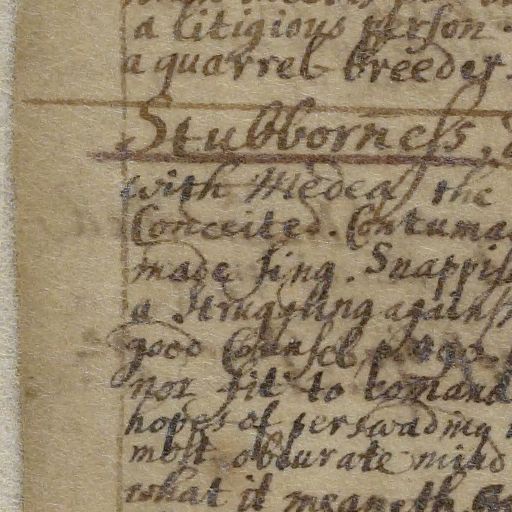 a litigious person.
a quarrel breeder.
Stubborness,
with Medea the
Conceited. Contuma
made sing. Snappis
a strugling against
good Counsel,
nor fit to comand
hopes of perswading
most obdurate mind
what it meaneth